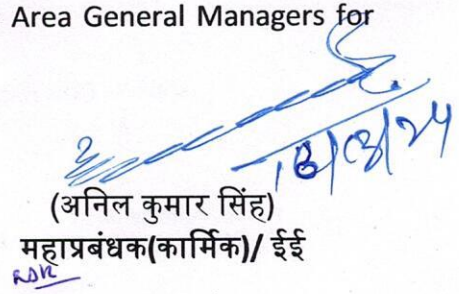 Area General Managers for
(अनिल कुमार सिंह)
महाप्रबंधक(कार्मिक)/ ईई